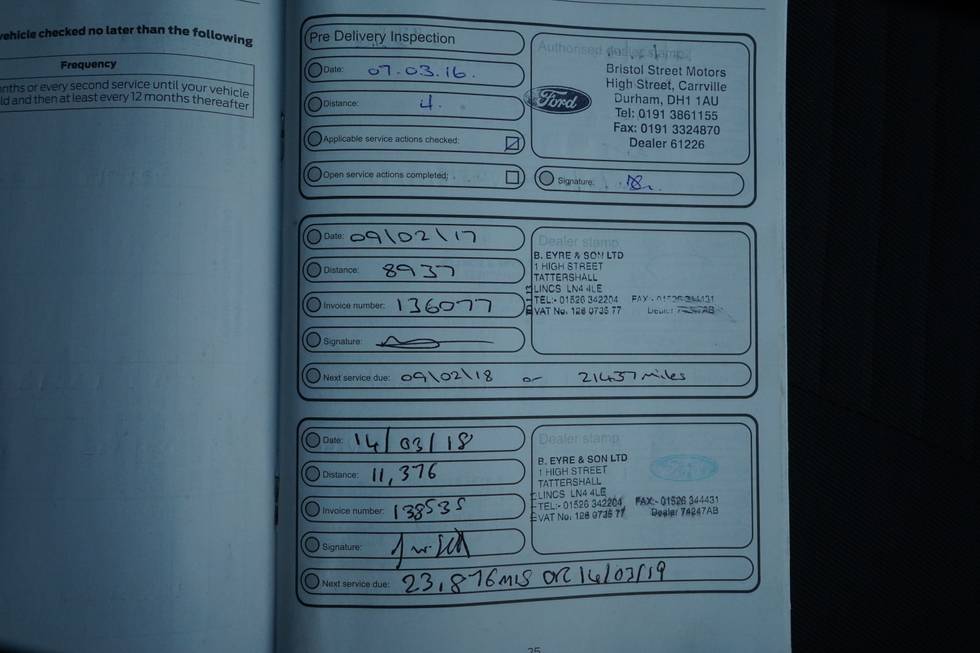 vehicle checked no later than the following
Frequency
months or every second service until your vehicle
old and then at least every 12 months thereafter
Pre Delivery Inspection
Date: 07.03.16.
Distance: 4.
Applicable service actions checked:
Open service actions completed:
Authorised dealer stamp
Ford
Bristol Street Motors
High Street, Carrville
Durham, DH1 1AU
Tel: 0191 3861155
Fax: 0191 3324870
Dealer 61226
Signature:
Date: 09/02/17
Distance: 8937
Invoice number: 136077
Signature:
Next service due: 09/02/18 or 21437 miles
Dealer stamp
B. EYRE & SON LTD
1 HIGH STREET
TATTERSHALL
LINCS LN4 4LE
TEL:- 01526 342204 FAX:- 01526 344431
VAT No. 128 0735 77 Dealer
Date: 14/03/18
Distance: 11,376
Invoice number: 138535
Signature:
Next service due: 23,876 MLS OR 14/03/19
Dealer stamp
B. EYRE & SON LTD
1 HIGH STREET
TATTERSHALL
LINCS LN4 4LE
TEL:- 01526 342204 FAX:- 01526 344431
VAT No. 128 0735 77 Dealer 74247AB
35